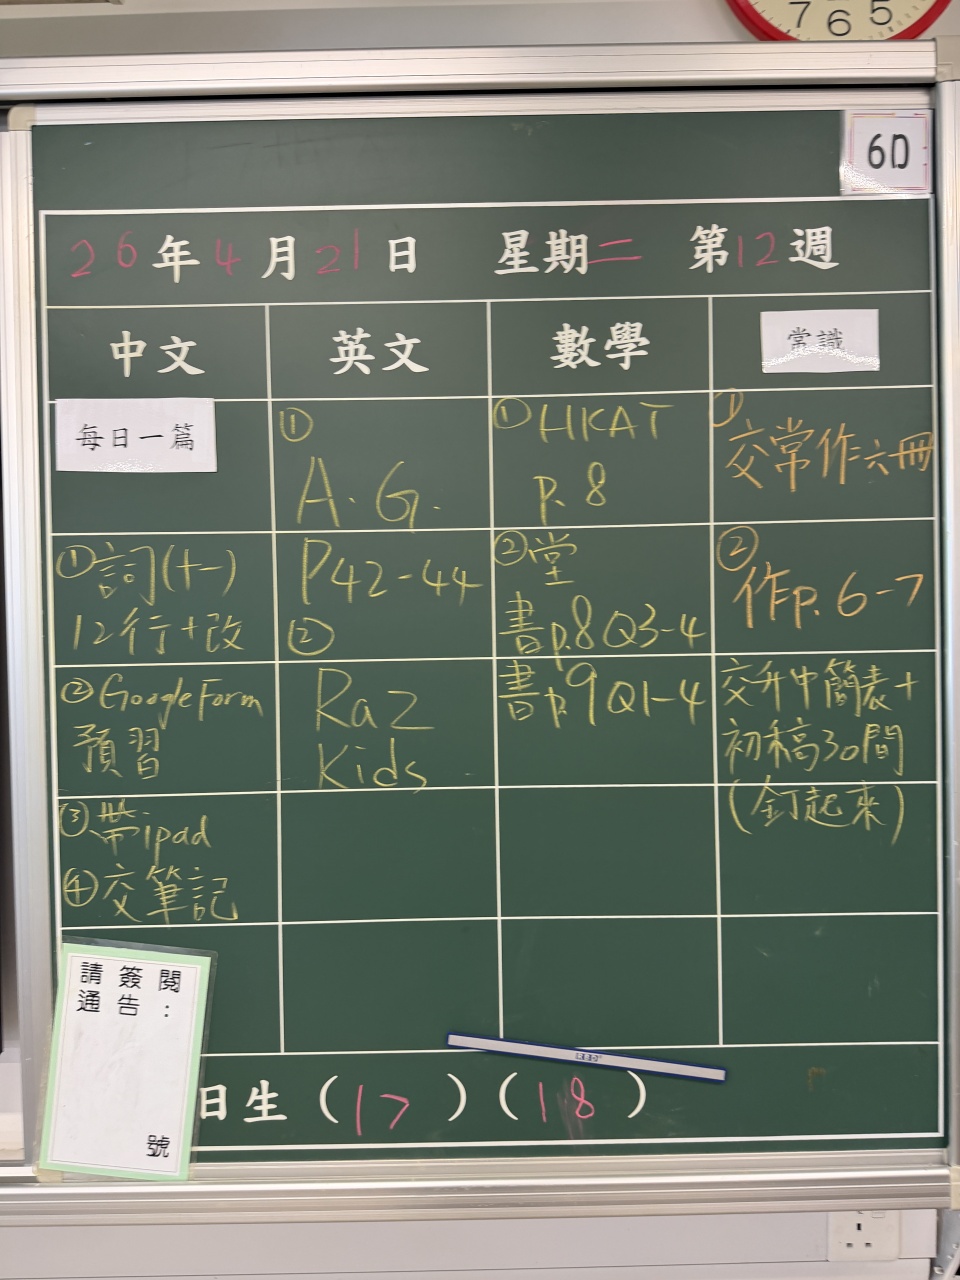 7 6 5
6D
26年4月21日 星期二 第12週
中文 英文 數學 常識
每日一篇
①詞(十一)
12行+改
②Google Form
預習
③帶ipad
④交筆記
①
A.G.
P42-44
②
Raz
Kids
①HKAT
p.8
②堂
書p.8 Q3-4
書p.9 Q1-4
①
交常作六冊
②
作p.6-7
交升中簡表+
初稿30間
(釘起來)
請簽閱
通告:
號
日生(17)(18)